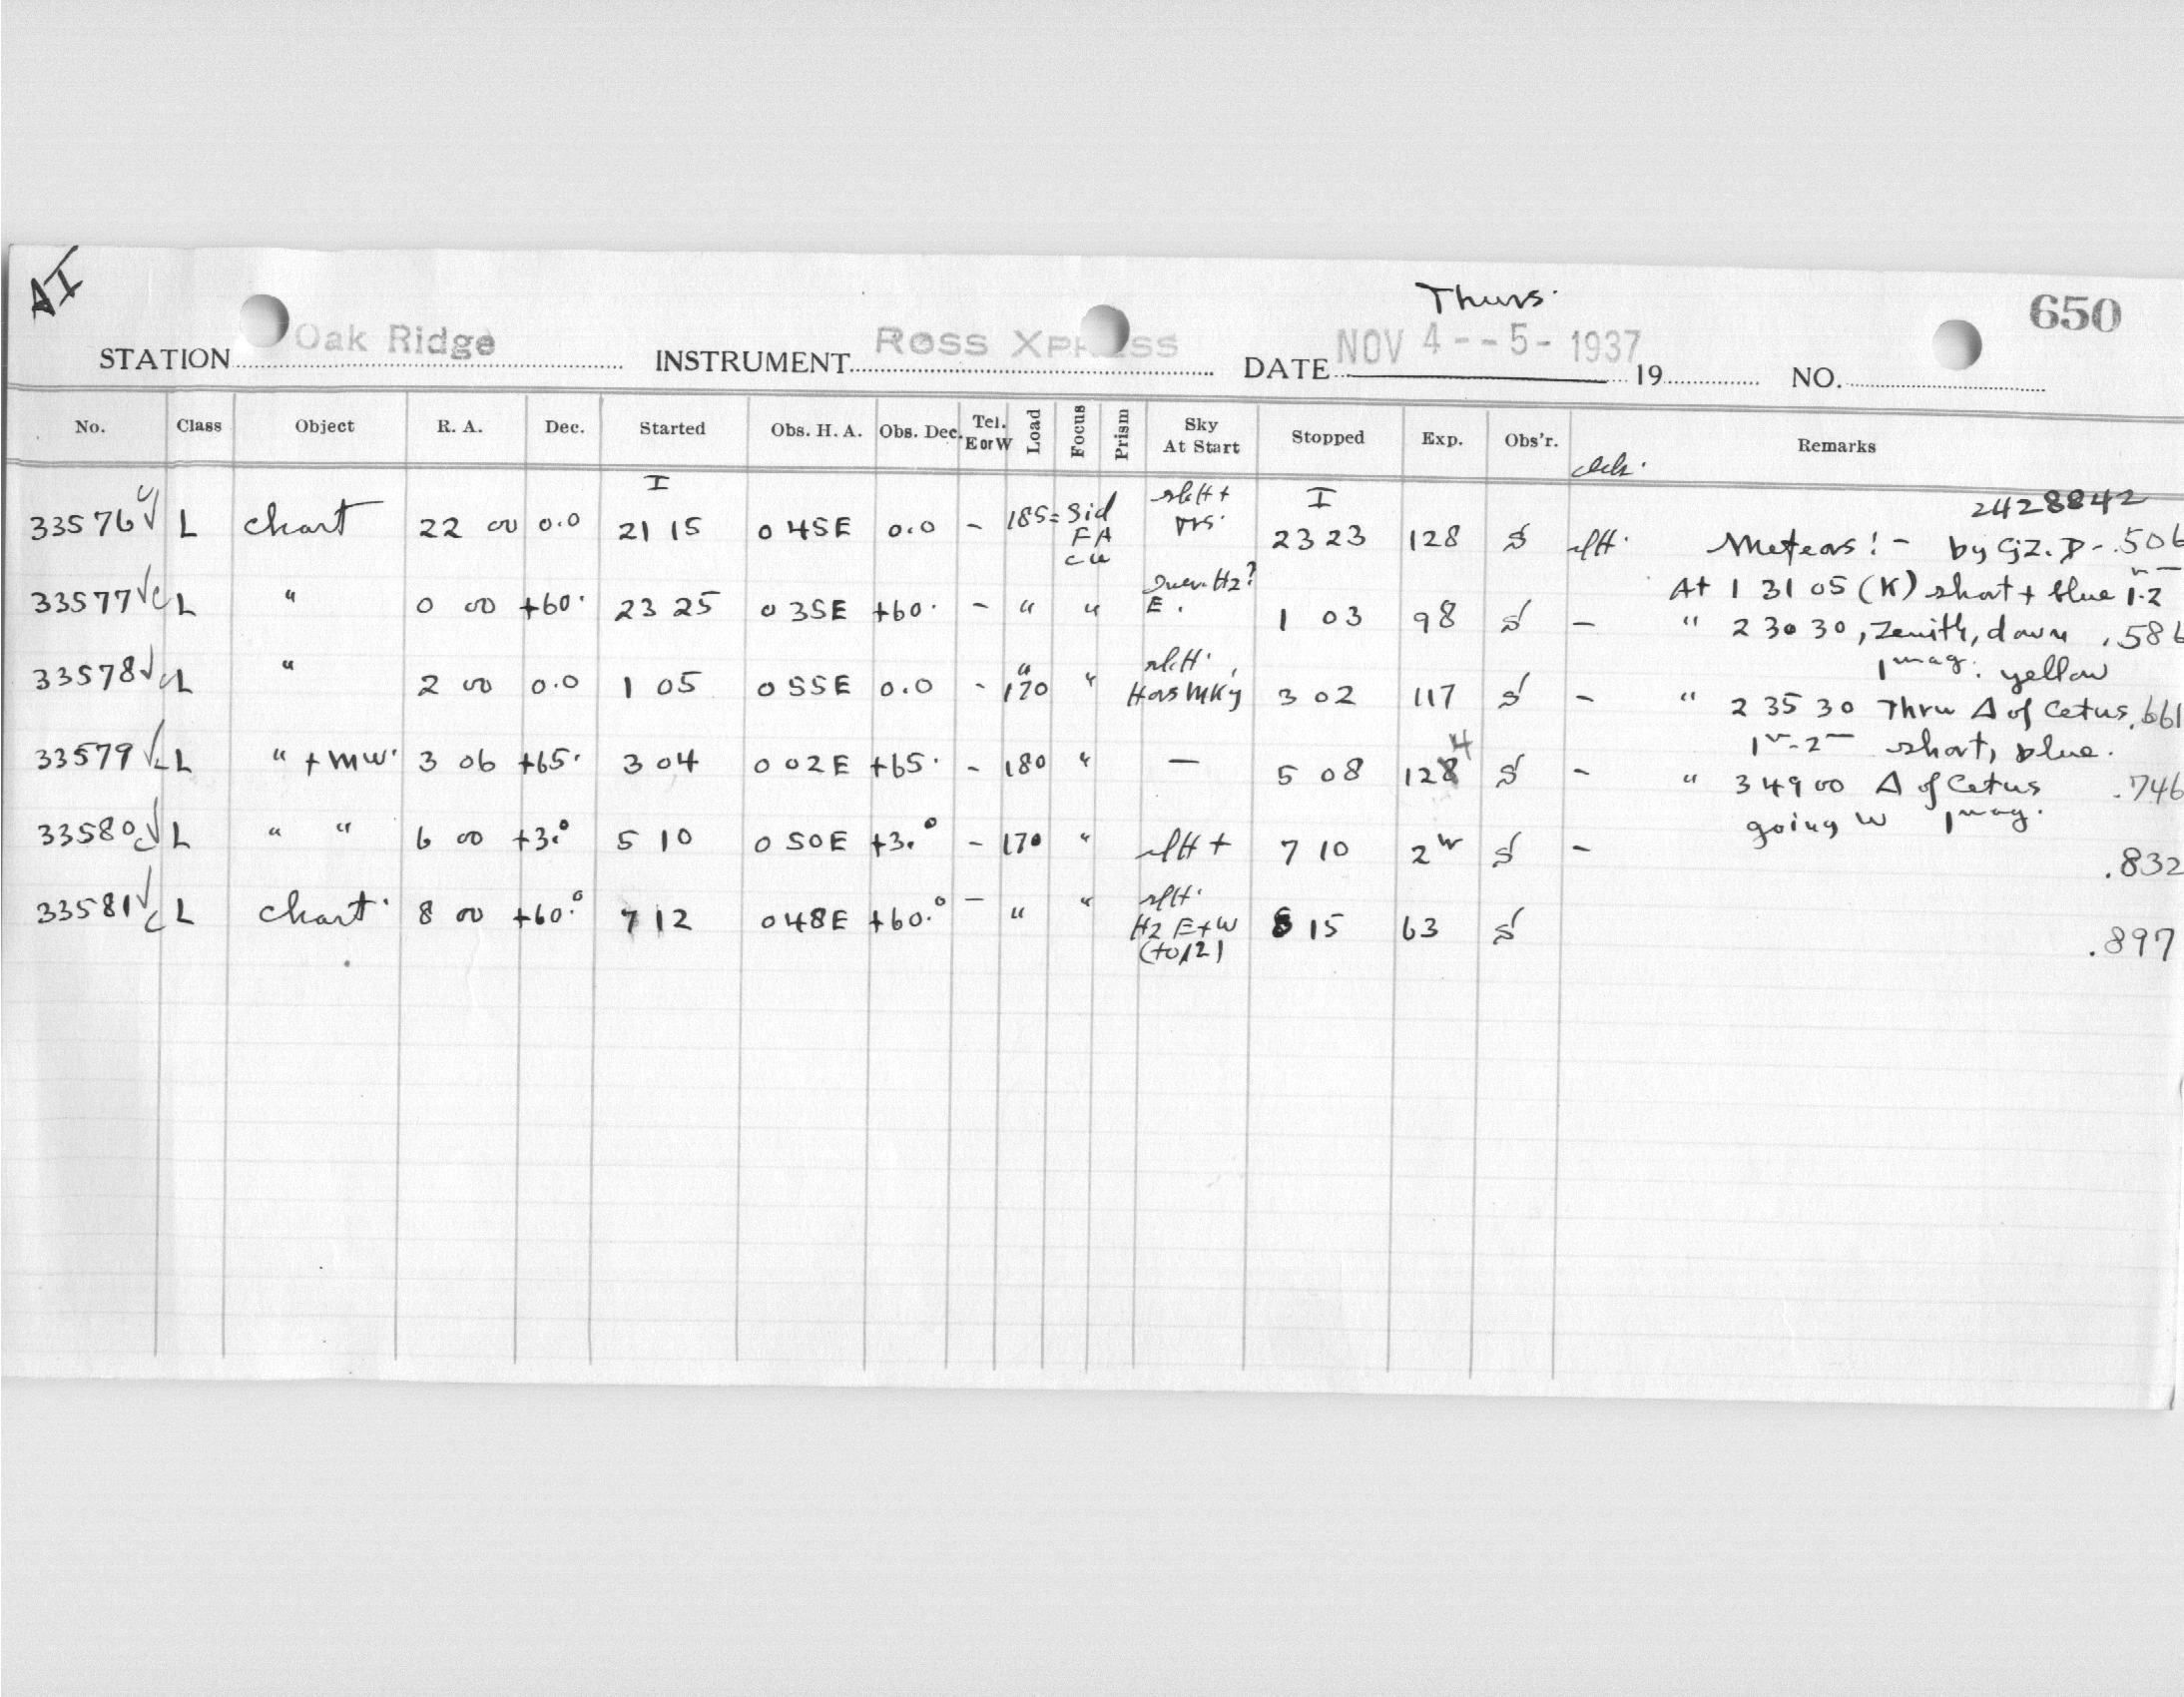 AI
Thurs.
650
STATION Oak Ridge INSTRUMENT Ross Xpress DATE NOV 4--5-1937 19 NO.
No. Class Object R. A. Dec. Started Obs. H. A. Obs. Dec. Tel. E or W Load Focus Prism Sky At Start Stopped Exp. Obs'r. Remarks
I I 2428842
33576 L chart 22 00 0.0 21 15 0 45E 0.0 - 185= Sid 23 23 128 S Meteors! - by .506
FA
33577 L " 0 00 +60. 23 25 0 35E +60. - " " E. 1 03 98 S - At 1 31 05 (K) short + blue 1-2
" 2 30 30, Zenith, down .586
1 mag. yellow
33578 L " 2 00 0.0 1 05 0 55E 0.0 - " 170 " 3 02 117 S - " 2 35 30 Thru Δ of Cetus .661
1m-2m short, blue.
33579 L " + MW. 3 06 +65. 3 04 0 02E +65. - 180 " — 5 08 128 4 S - " 3 49 00 Δ of Cetus .746
going W 1 mag.
33580 L " " 6 00 +3.° 5 10 0 50E +3.° - 170 " 7 10 2h S - .832
33581 L chart. 8 00 +60.° 7 12 0 48E +60.° - " " Hz E+W (to 12) 8 15 63 S .897